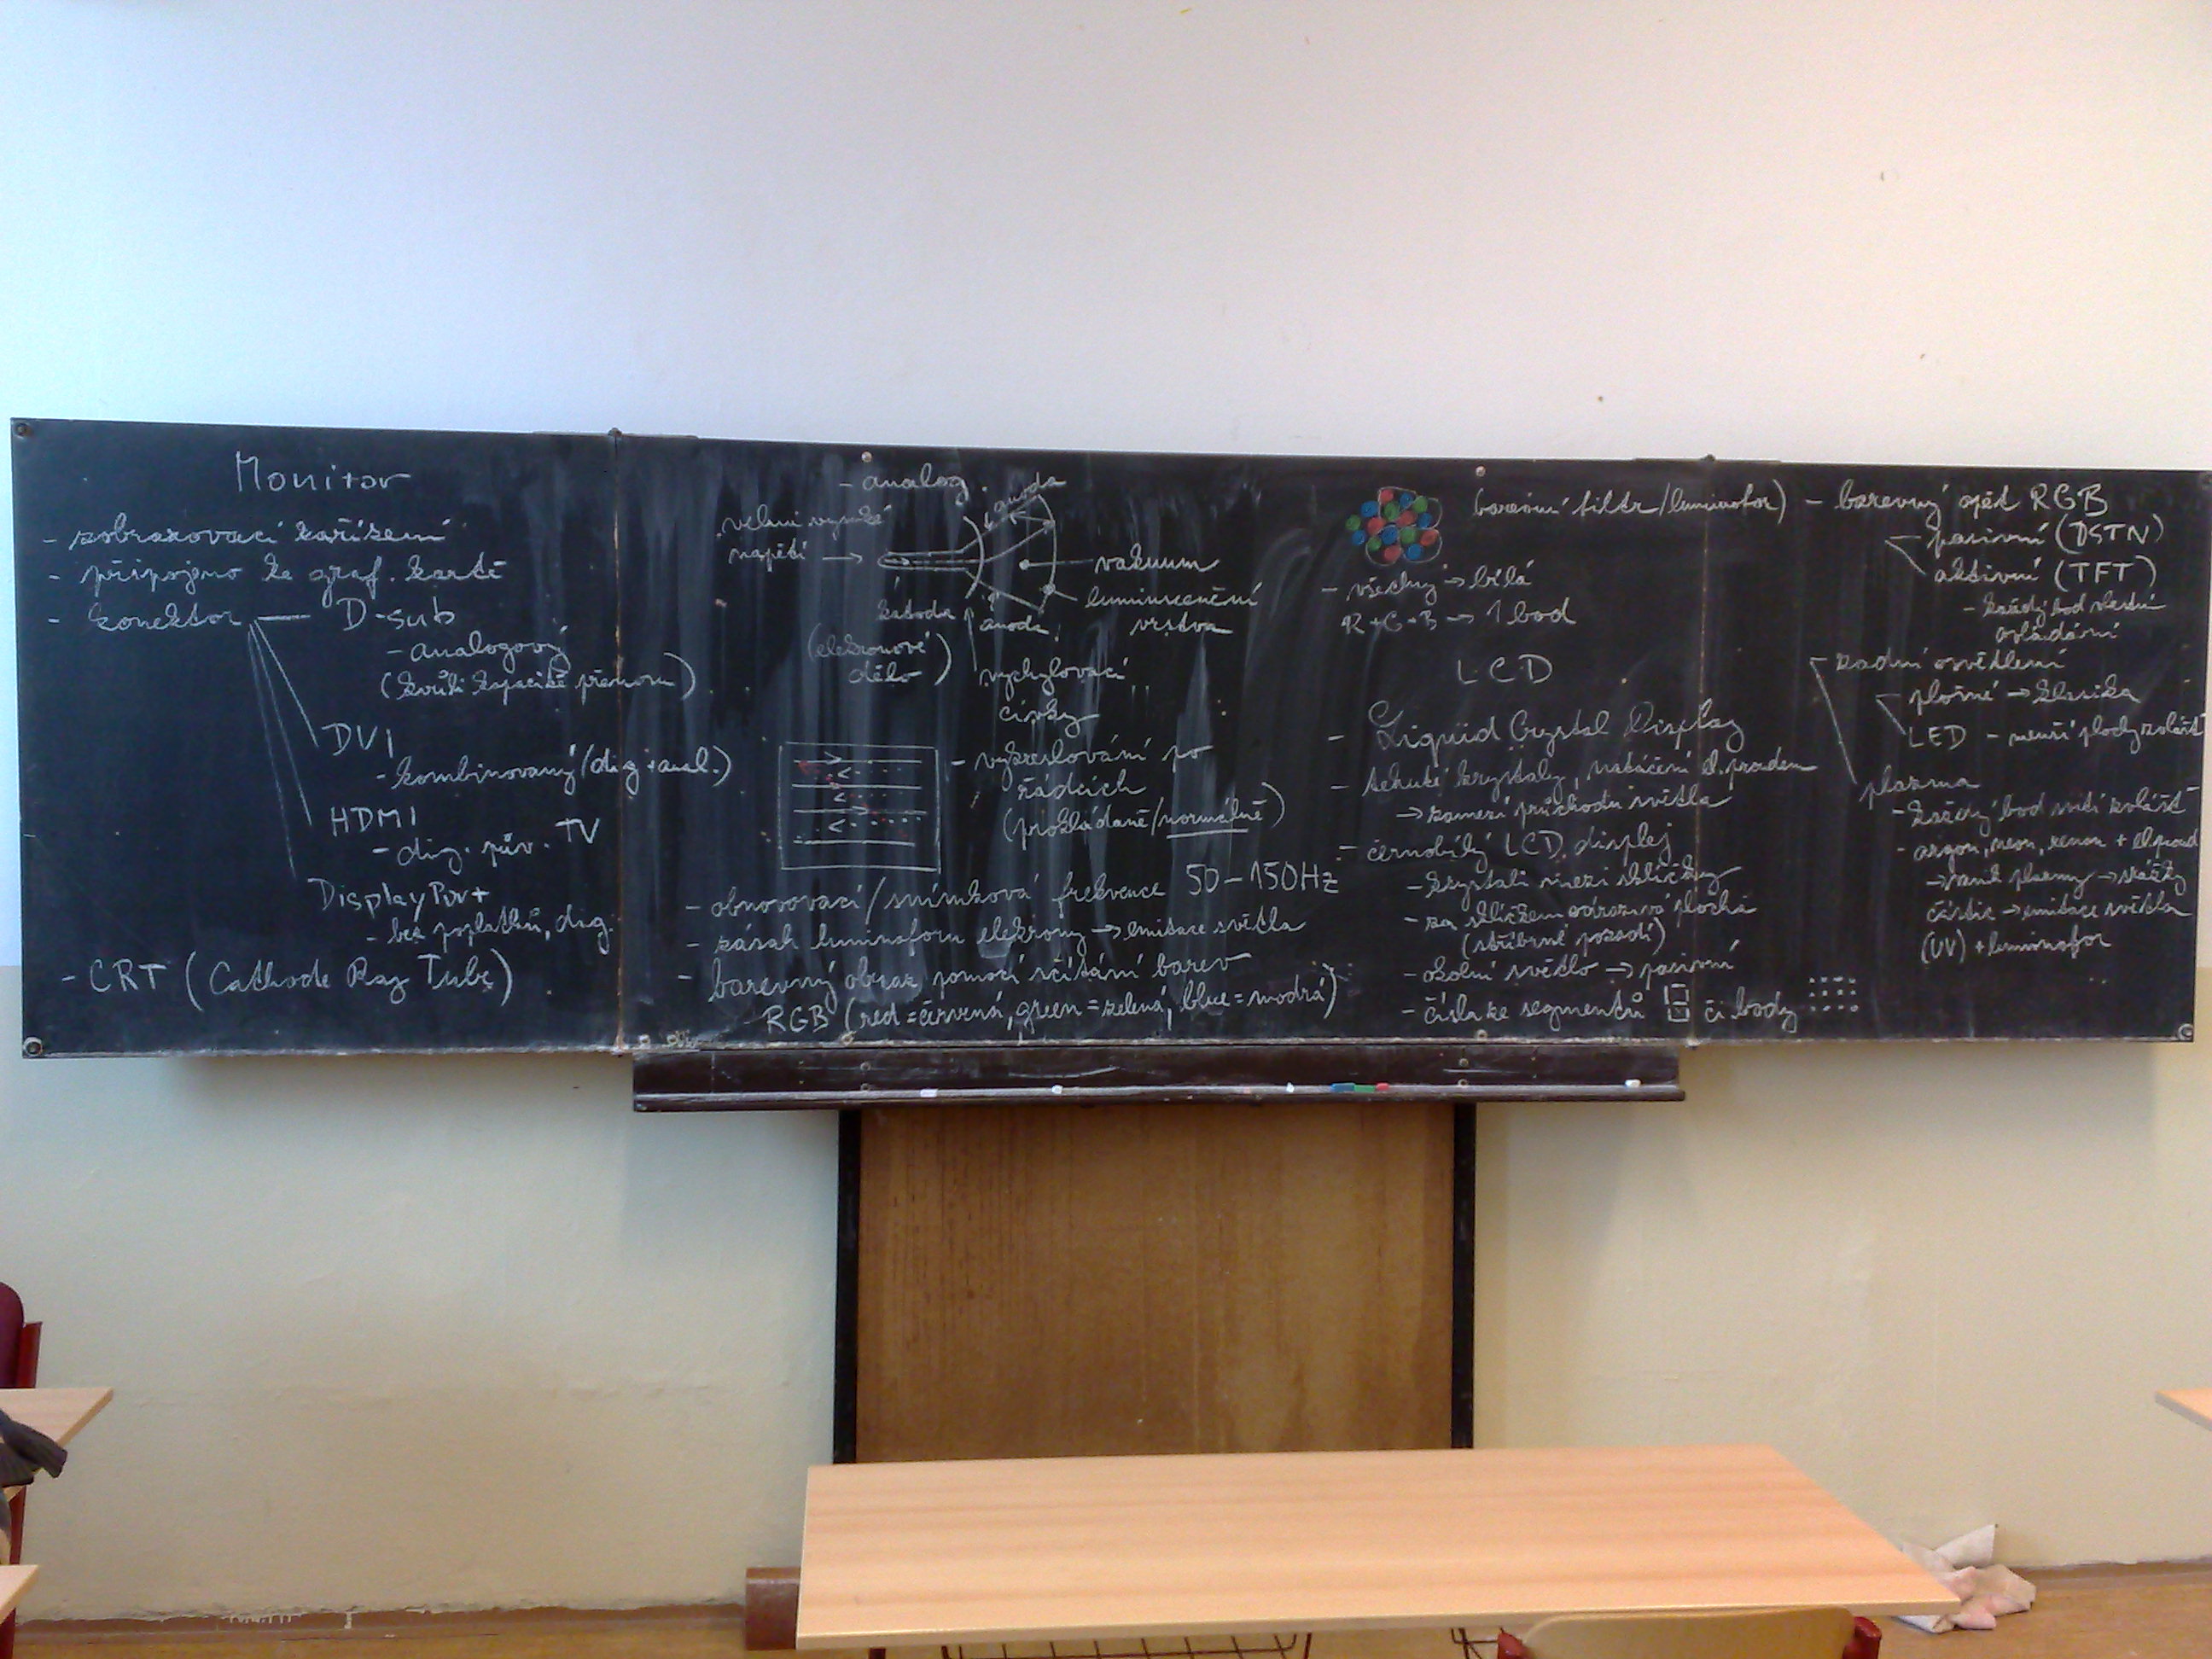 Monitor
- zobrazovací zařízení
- připojeno ke graf. kartě
- konektor — D-sub
- analogový
(kvůli kapacitě přenosu)
DVI
- kombinovaný (dig + anal.)
HDMI
- dig. pův. TV
DisplayPort
- bez poplatků, dig.
- CRT (Cathode Ray Tube)
- analog.
anoda
velmi vysoké
napětí →
vakuum
luminiscenční
vrstva
katoda
anoda
(elektronové
dělo)
vychylovací
cívky
- vykreslování po
řádcích
(prokládaně/normálně)
- obnovovací/snímková frekvence 50-150Hz
- zásah luminoforu elektrony → emitace světla
- barevný obraz pomocí sčítání barev
RGB (red=červená, green=zelená, blue=modrá)
barevní filtr/luminofor)
- všechny → bílá
R+G+B → 1 bod
LCD
- Liquid Crystal Display
- tekuté krystaly, natáčení el. proudem
→ zamezí průchodu světla
- černobílý LCD displej
- krystali mezi sklíčky
- za sklíčkem odrazivá plocha
(stříbrné pozadí)
- okolní světlo → pasivní
- čísla ze segmentů 8 či body
- barevný opět RGB
pasivní (DSTN)
aktivní (TFT)
- každý bod vlastní
ovládání
zadní osvětlení
plošné → klasika
LED - menší plochy zvlášť
plazma
- každý bod svítí zvlášť
- argon, neon, xenon + el. proud
→ vznik plazmy → srážky
částic → emitace světla
(UV) + luminofor